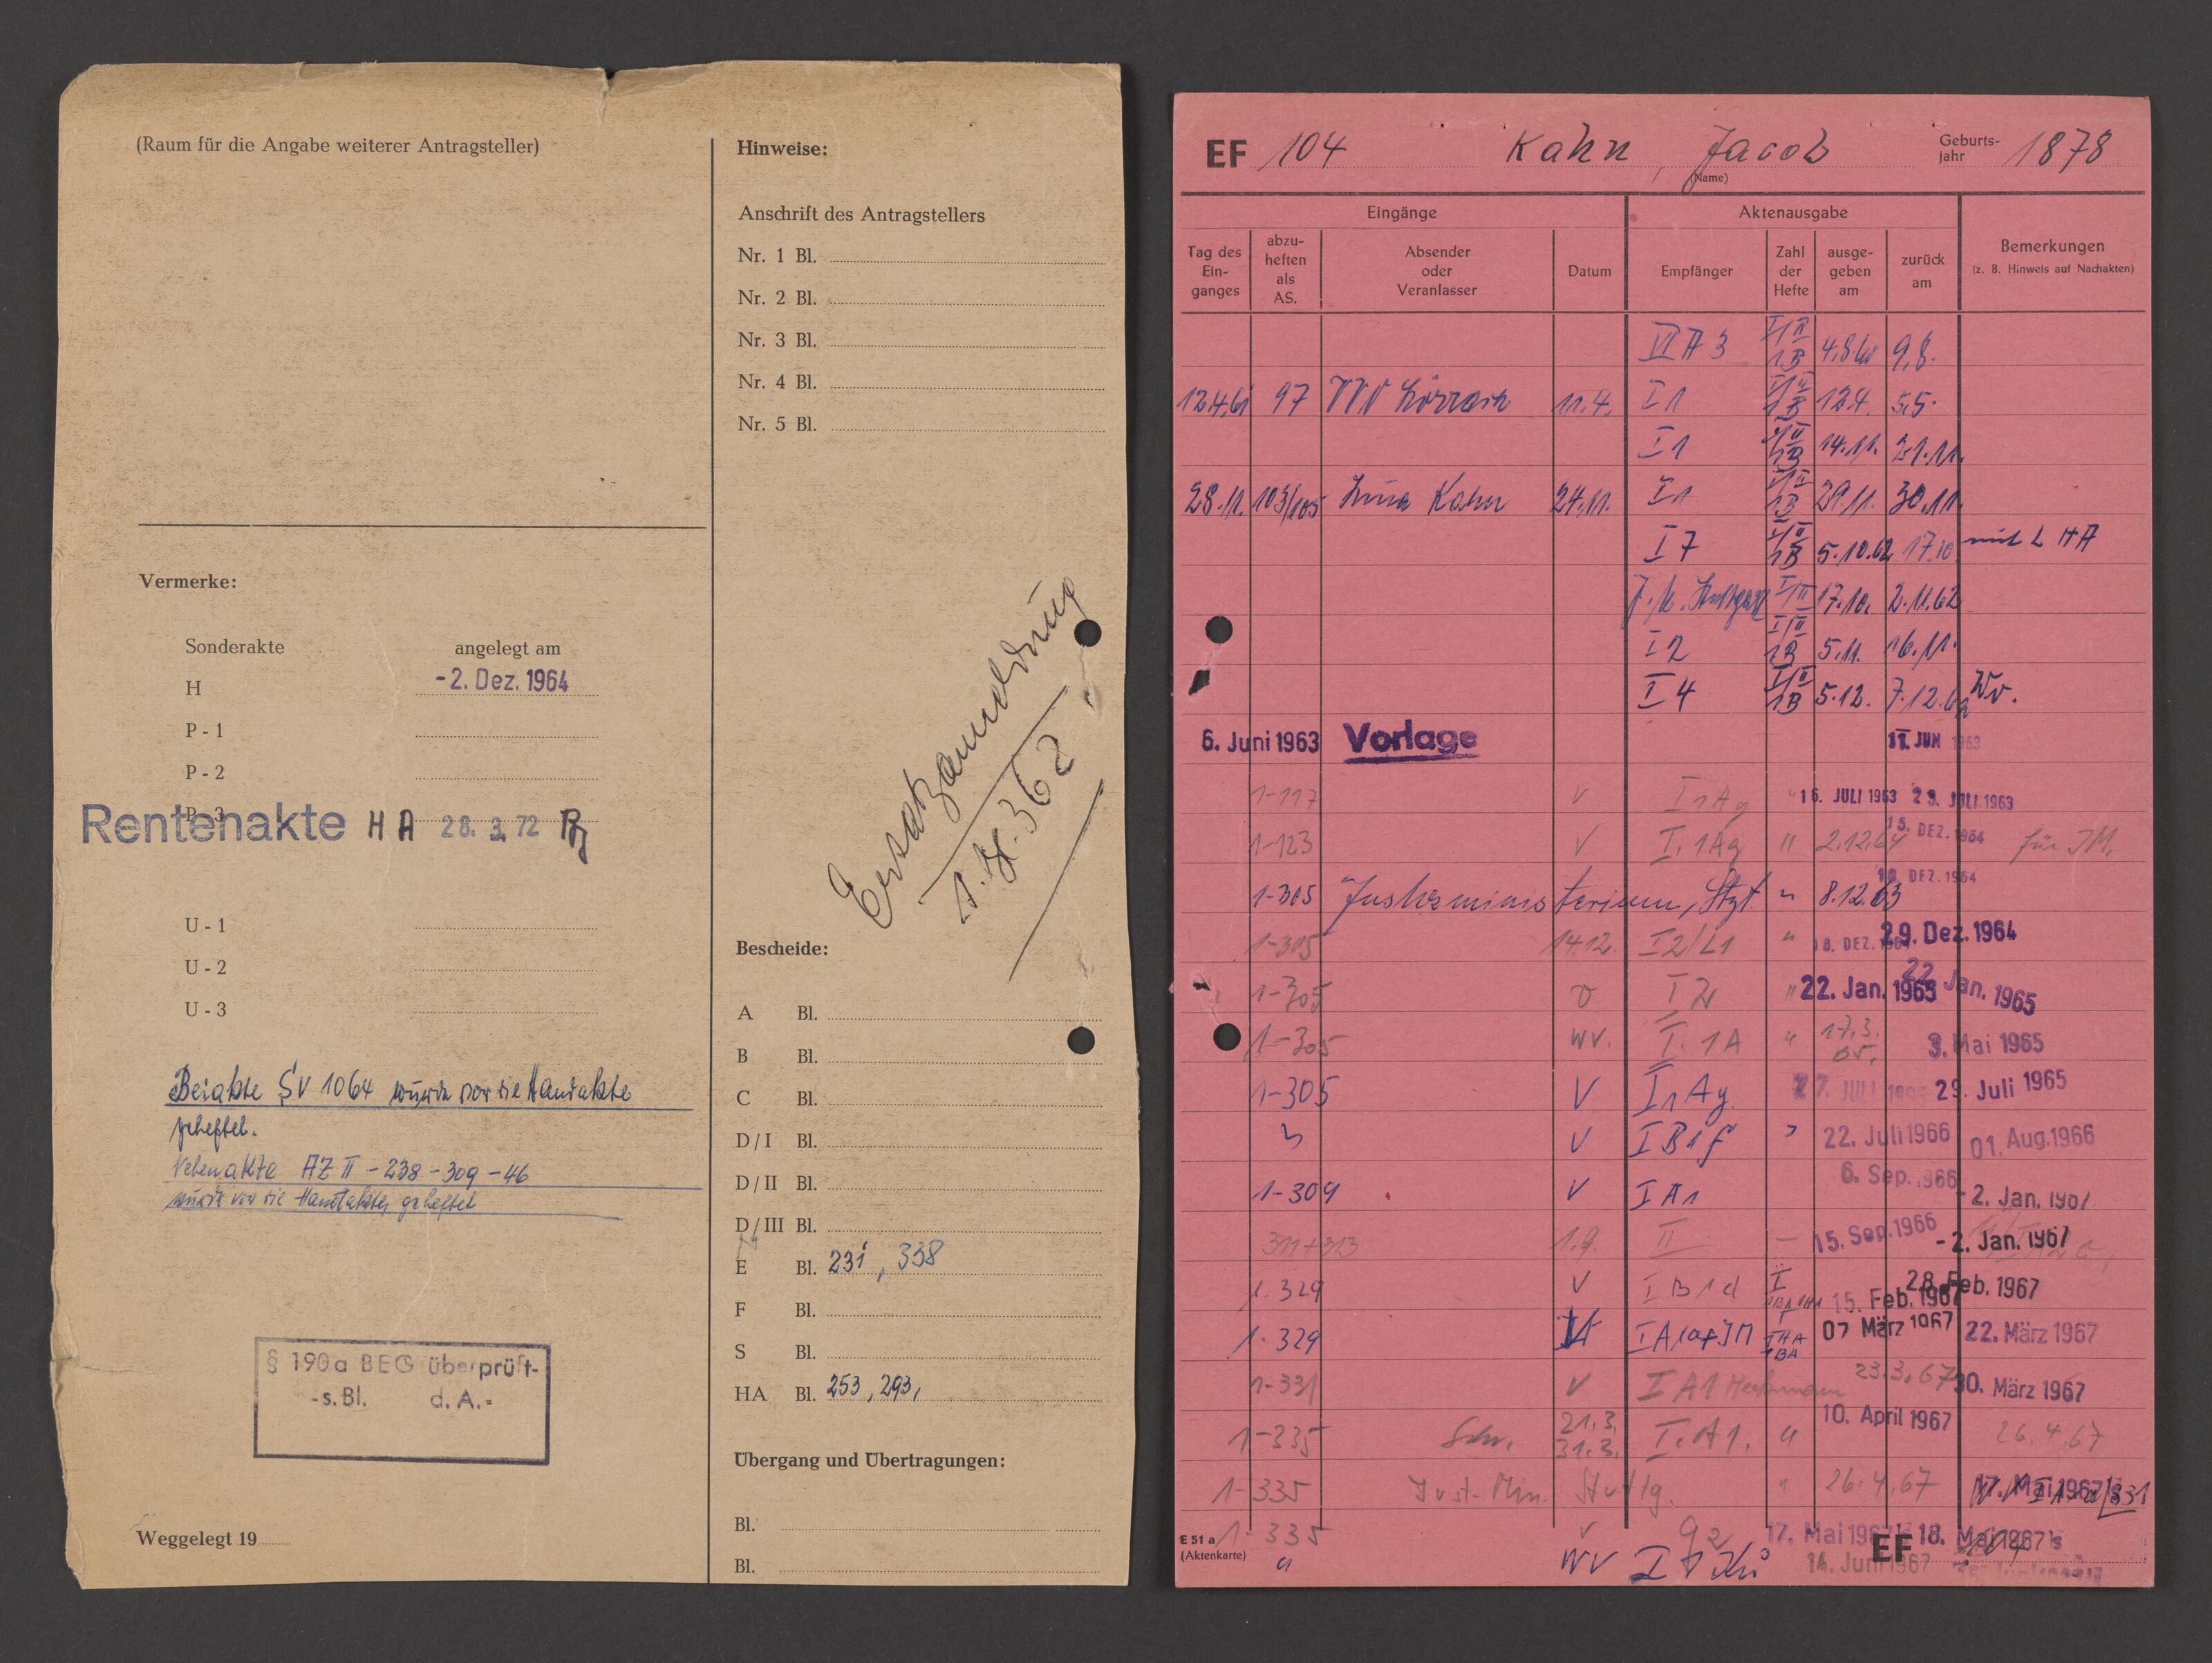 (Raum für die Angabe weiterer Antragsteller)
Vermerke:
Sonderakte angelegt am
H -2. Dez. 1964
P - 1
P - 2
P - 3
Rentenakte HA 28. 3. 72
U - 1
U - 2
U - 3
Beiakte SV 1064 wurde vor die Handakte
geheftet.
Nebenakte AZ II - 238 - 309 - 46
wurde vor die Handakte geheftet
§ 190a BEG überprüft-
-s. Bl. d. A.-
Weggelegt 19
Hinweise:
Anschrift des Antragstellers
Nr. 1 Bl.
Nr. 2 Bl.
Nr. 3 Bl.
Nr. 4 Bl.
Nr. 5 Bl.
Ersatzanmeldung
Bescheide:
A Bl.
B Bl.
C Bl.
D / I Bl.
D / II Bl.
D / III Bl.
E Bl. 231, 338
F Bl.
S Bl.
HA Bl. 253, 293,
Übergang und Übertragungen:
Bl.
Bl.
EF 104 Kahn, Jacob Geburts-
jahr 1878
(Name)
Eingänge Aktenausgabe
Tag des
Ein-
ganges
abzu-
heften
als
AS.
Absender
oder
Veranlasser
Datum
Empfänger
Zahl
der
Hefte
ausge-
geben
am
zurück
am
Bemerkungen
(z. B. Hinweis auf Nachakten)
VI A 3 9.8.
12.4.61 97 VVN Lörrach 11.4. I 1 12.4. 5.5.
I 1 14.11. 21.11.
28.11. 103/105 Kahn 24.11. I 1 29.11. 30.11.
I 7 5.10.62 17.10
I/II 17.10. 2.11.62
I 2 5.11. 16.11.
I 4 5.12. 7.12.62 Wv.
6. Juni 1963 Vorlage 11. JUN 1963
1-117 V I 1 Ag " 16. JULI 1963 29. JULI 1963
1-123 V I. 1 Ag " 2.12.64 15. DEZ. 1964 für JM.
1-305 Justizministerium, Stgt. " 8.12.63 10. DEZ. 1964
1-305 14.12. I 2/L1 " 18. DEZ. 29. Dez. 1964
1-305 v I 2 " 22. Jan. 1965 22. Jan. 1965
1-305 WV. I. 1 A " 17.3.65. 3. Mai 1965
1-305 V I 1 Ag. 27. JULI 1965 29. Juli 1965
V I B 1 f 22. Juli 1966 01. Aug. 1966
1-309 V I A 1 6. Sep. 1966 - 2. Jan. 1967
311+313 1.9. II 15. Sep. 1966 - 2. Jan. 1967
1. 329 V I B 1 d 15. Feb. 1967 28. Feb. 1967
1. 329 07. März 1967 22. März 1967
1-331 V I A 1 23.3.67 30. März 1967
1-335 Schr. 21.3. 31.3. I. A 1. " 10. April 1967 26.4.67
1-335 Just.-Min. Stuttg. " 26.4.67 17. Mai 1967
1-335 17. Mai 1967 18. Mai 1967
WV 14. Juni 1967
E 51 a
(Aktenkarte)
EF 104